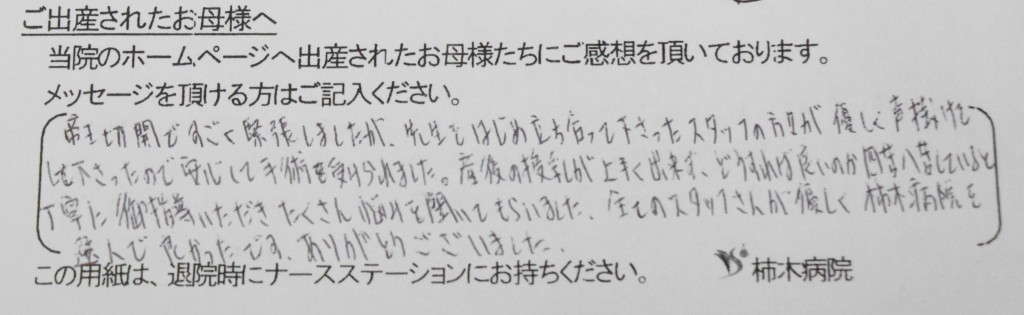 ご出産されたお母様へ
当院のホームページへ出産されたお母様たちにご感想を頂いております。
メッセージを頂ける方はご記入ください。
帝王切開ですごく緊張しましたが、先生をはじめ立ち合って下さったスタッフの方々が優しく声掛けを
して下さったので安心して手術を受けられました。産後の授乳が上手く出来ず、どうすれば良いのか四苦八苦していると
丁寧に御指導いただきたくさん悩みを聞いてもらいました。全てのスタッフさんが優しく柿木病院を
選んで良かったです。ありがとうございました。
この用紙は、退院時にナースステーションにお持ちください。
柿木病院